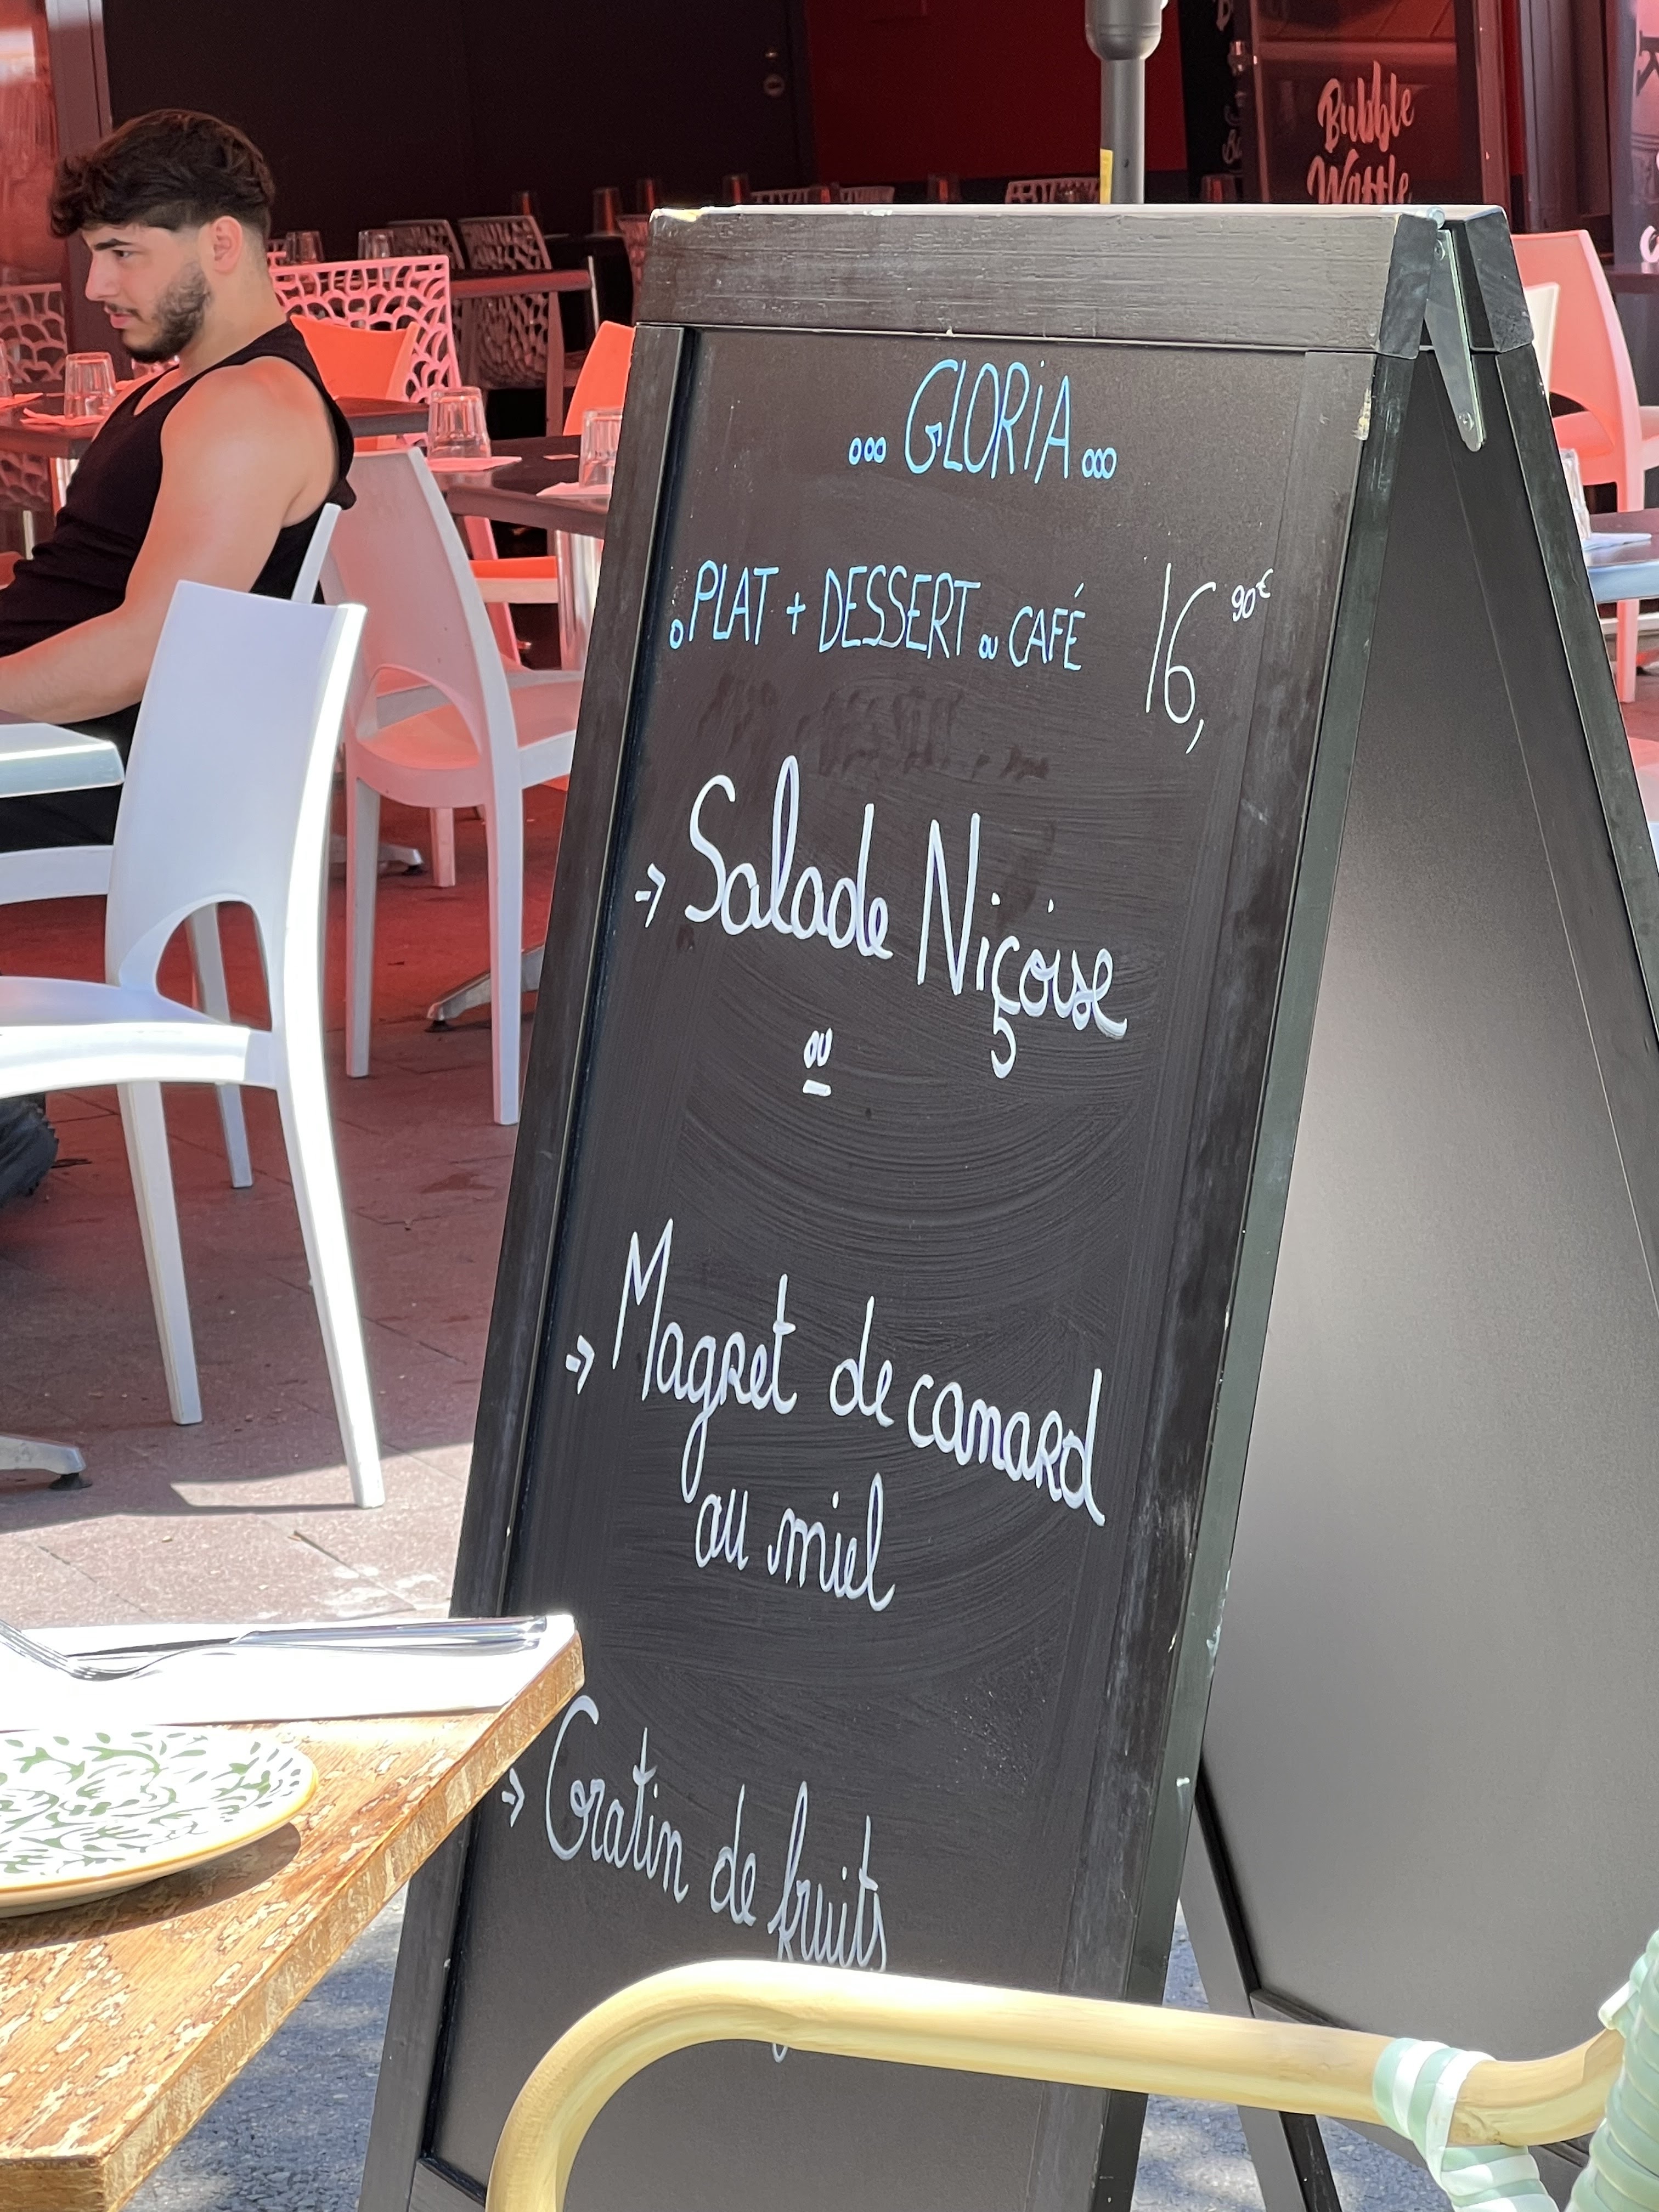 Bubble
Waffle
... GLORiA ...
. PLAT + DESSERT ou CAFÉ 16,90€
-> Salade Niçoise
ou
-> Magret de canard
au miel
-> Gratin de fruits